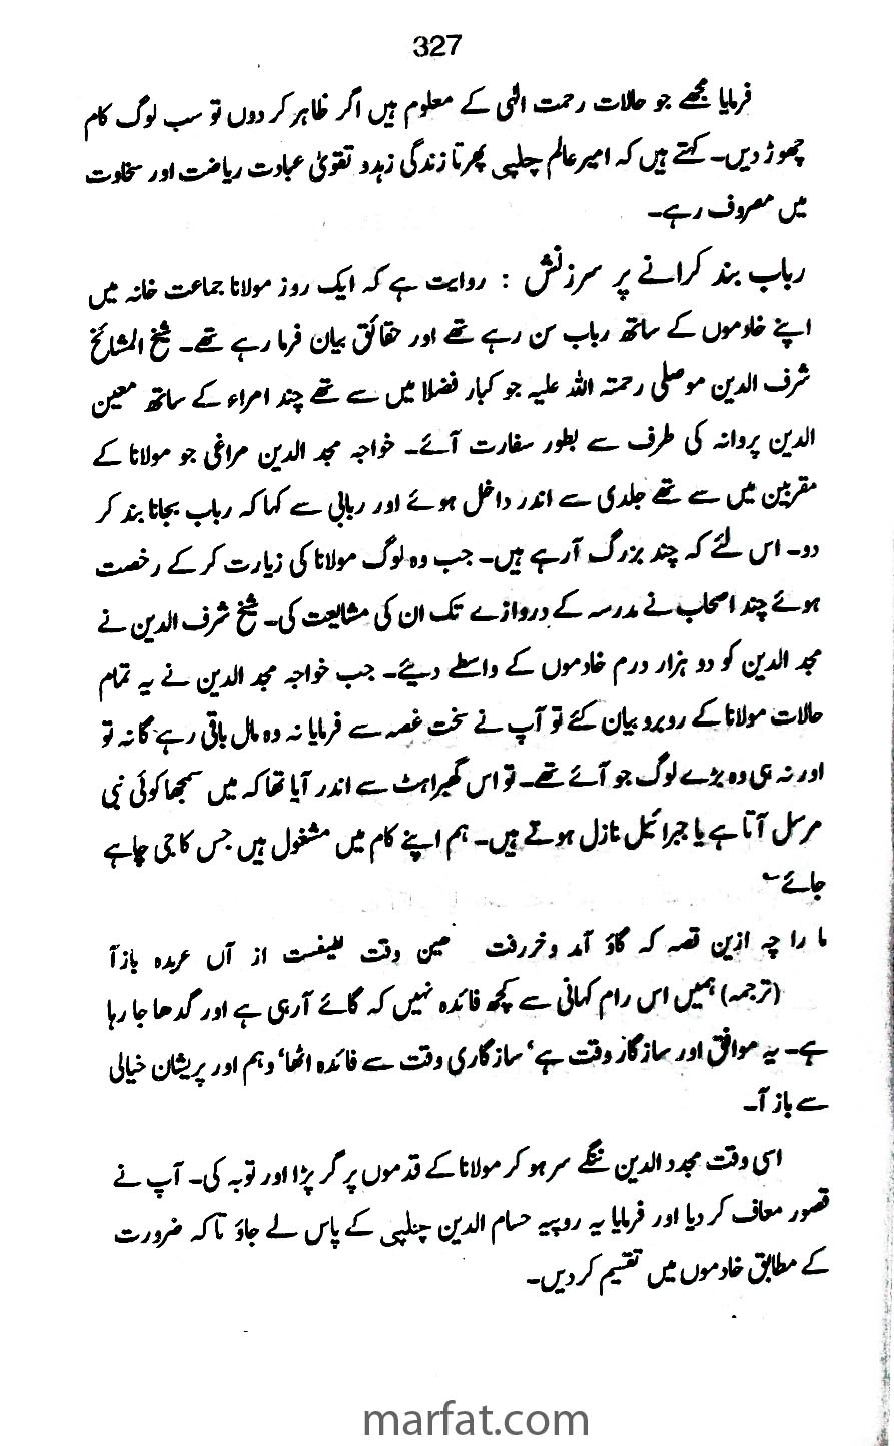 327
فرمایا مجھے جو حالات رحمت الٰہی کے معلوم ہیں اگر ظاہر کر دوں تو سب لوگ کام
چھوڑ دیں۔ کہتے ہیں کہ امیر عالم چلپی پھر تا زندگی زہد و تقویٰ عبادت ریاضت اور سخاوت
میں مصروف رہے۔
رباب بند کرانے پر سرزنش : روایت ہے کہ ایک روز مولانا جماعت خانہ میں
اپنے خادموں کے ساتھ رباب سن رہے تھے اور حقائق بیان فرما رہے تھے۔ شیخ المشائخ
شرف الدین موصلی رحمتہ اللہ علیہ جو کبار فضلا میں سے تھے چند امراء کے ساتھ معین
الدین پروانہ کی طرف سے بطور سفارت آئے۔ خواجہ مجد الدین مراغی جو مولانا کے
مقربین میں سے تھے جلدی سے اندر داخل ہوئے اور ربابی سے کہا کہ رباب بجانا بند کر
دو۔ اس لئے کہ چند بزرگ آرہے ہیں۔ جب وہ لوگ مولانا کی زیارت کر کے رخصت
ہوئے چند اصحاب نے مدرسہ کے دروازے تک ان کی مشایعت کی۔ شیخ شرف الدین نے
مجد الدین کو دو ہزار درم خادموں کے واسطے دیئے۔ جب خواجہ مجد الدین نے یہ تمام
حالات مولانا کے روبرو بیان کئے تو آپ نے سخت غصہ سے فرمایا نہ وہ مال باقی رہے گا نہ تو
اور نہ ہی وہ بڑے لوگ جو آئے تھے۔ تو اس گھبراہٹ سے اندر آیا تھا کہ میں سمجھا کوئی نبی
مرسل آتا ہے یا جبرائیل نازل ہوتے ہیں۔ ہم اپنے کام میں مشغول ہیں جس کا جی چاہے
جائے
ما را چہ ازین قصہ کہ گاؤ آمد و خر رفت ھین وقت از آں عربدہ باز آ
(ترجمہ) ہمیں اس رام کہانی سے کچھ فائدہ نہیں کہ گائے آرہی ہے اور گدھا جا رہا
ہے۔ یہ موافق اور سازگار وقت ہے‘ سازگاری وقت سے فائدہ اٹھا‘ وہم اور پریشان خیالی
سے باز آ۔
اسی وقت مجدد الدین ننگے سر ہو کر مولانا کے قدموں پر گر پڑا اور توبہ کی۔ آپ نے
قصور معاف کر دیا اور فرمایا یہ روپیہ حسام الدین چلپی کے پاس لے جاؤ تاکہ ضرورت
کے مطابق خادموں میں تقسیم کر دیں۔
marfat.com